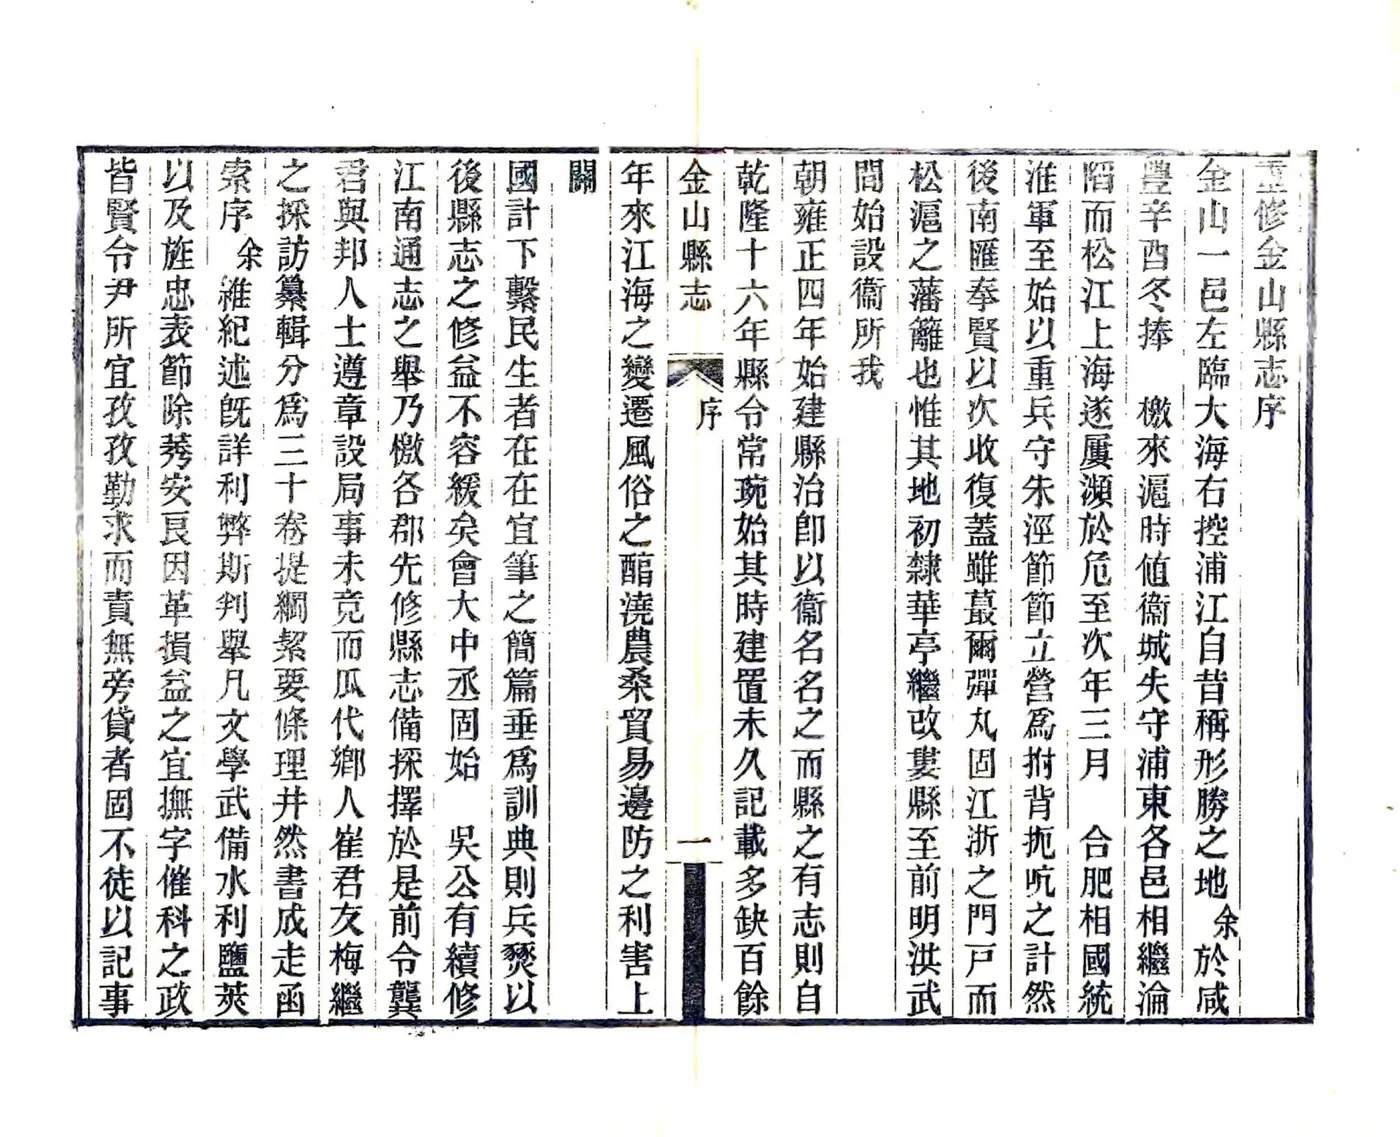 重修金山縣志序
金山一邑左臨大海右控浦江自昔稱形勝之地余於咸
豐辛酉冬捧　檄來滬時值衞城失守浦東各邑相繼淪
陷而松江上海遂屢瀕於危至次年三月　合肥相國統
淮軍至始以重兵守朱涇節節立營為拊背扼吭之計然
後南匯奉賢以次收復蓋雖蕞爾彈丸固江浙之門戶而
松滬之藩籬也惟其地初隸華亭繼改婁縣至前明洪武
間始設衞所我
朝雍正四年始建縣治卽以衞名名之而縣之有志則自
乾隆十六年縣令常琬始其時建置未久記載多缺百餘
金山縣志　序　一
年來江海之變遷風俗之醕澆農桑貿易邊防之利害上
關
國計下繫民生者在在宜筆之簡篇垂為訓典則兵燹以
後縣志之修益不容緩矣會大中丞固始　吳公有續修
江南通志之舉乃檄各郡先修縣志備採擇於是前令龔
君與邦人士遵章設局事未竟而瓜代鄉人崔君友梅繼
之採訪纂輯分為三十卷提綱絜要條理井然書成走函
索序余維紀述旣詳利弊斯判舉凡文學武備水利鹽莢
以及旌忠表節除莠安良因革損益之宜撫字催科之政
皆賢令尹所宜孜孜勤求而責無旁貸者固不徒以記事